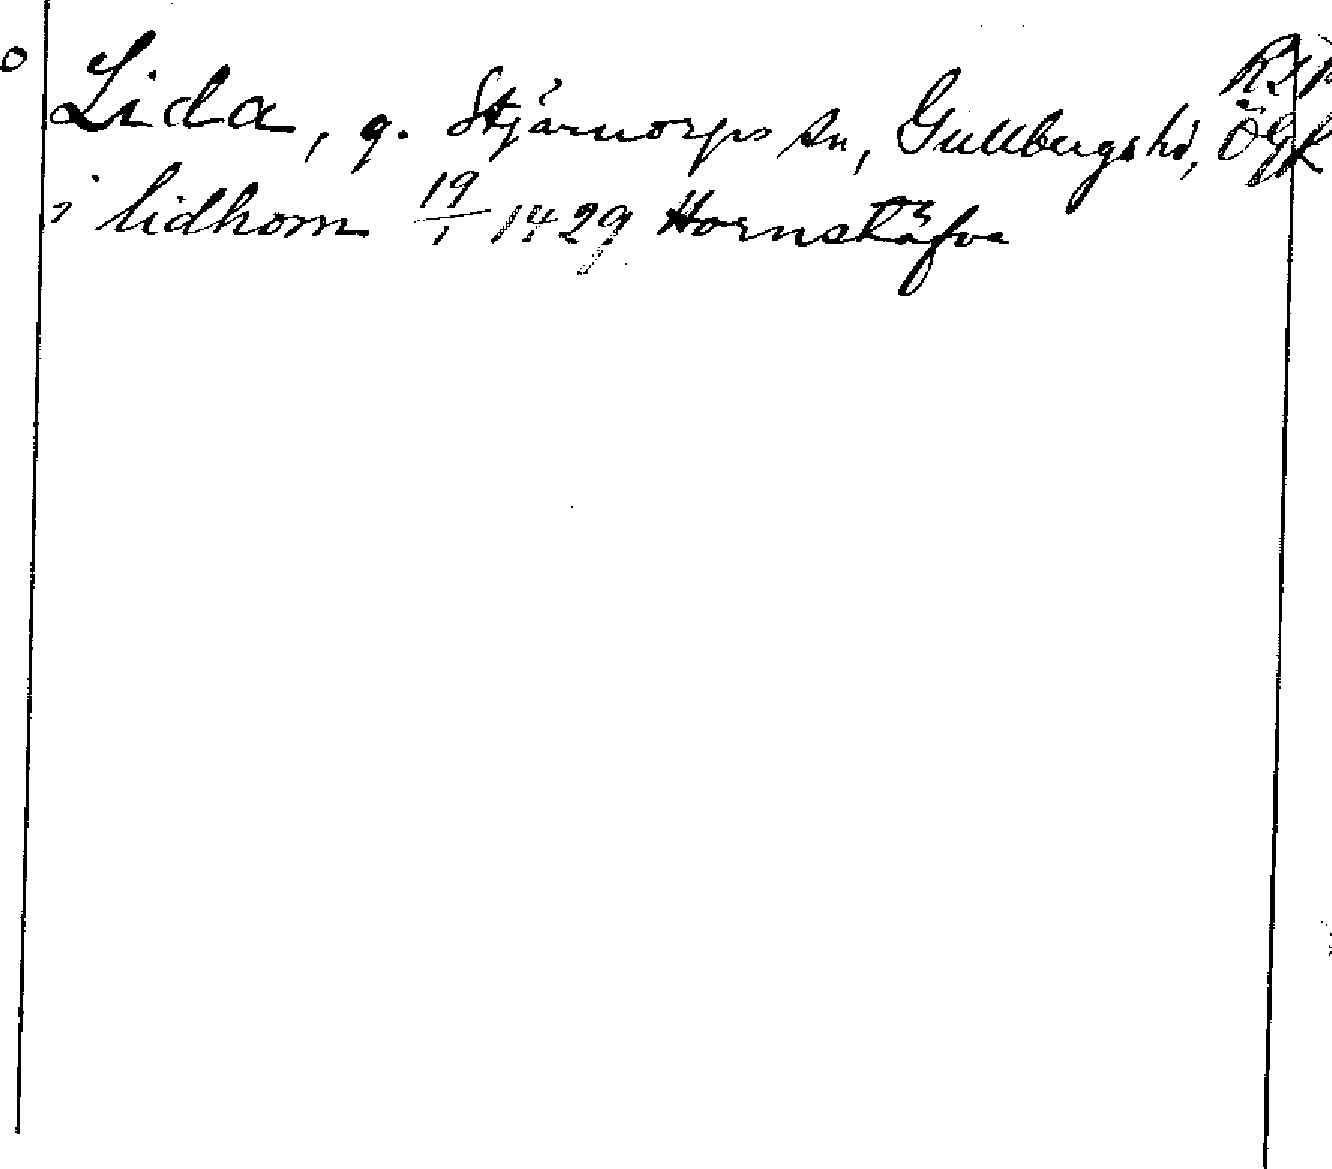 Lida, g. Stjärnorps sn, Gullbergs hd, Ögl
i lidhom 19/1 1429 Hornstäfve